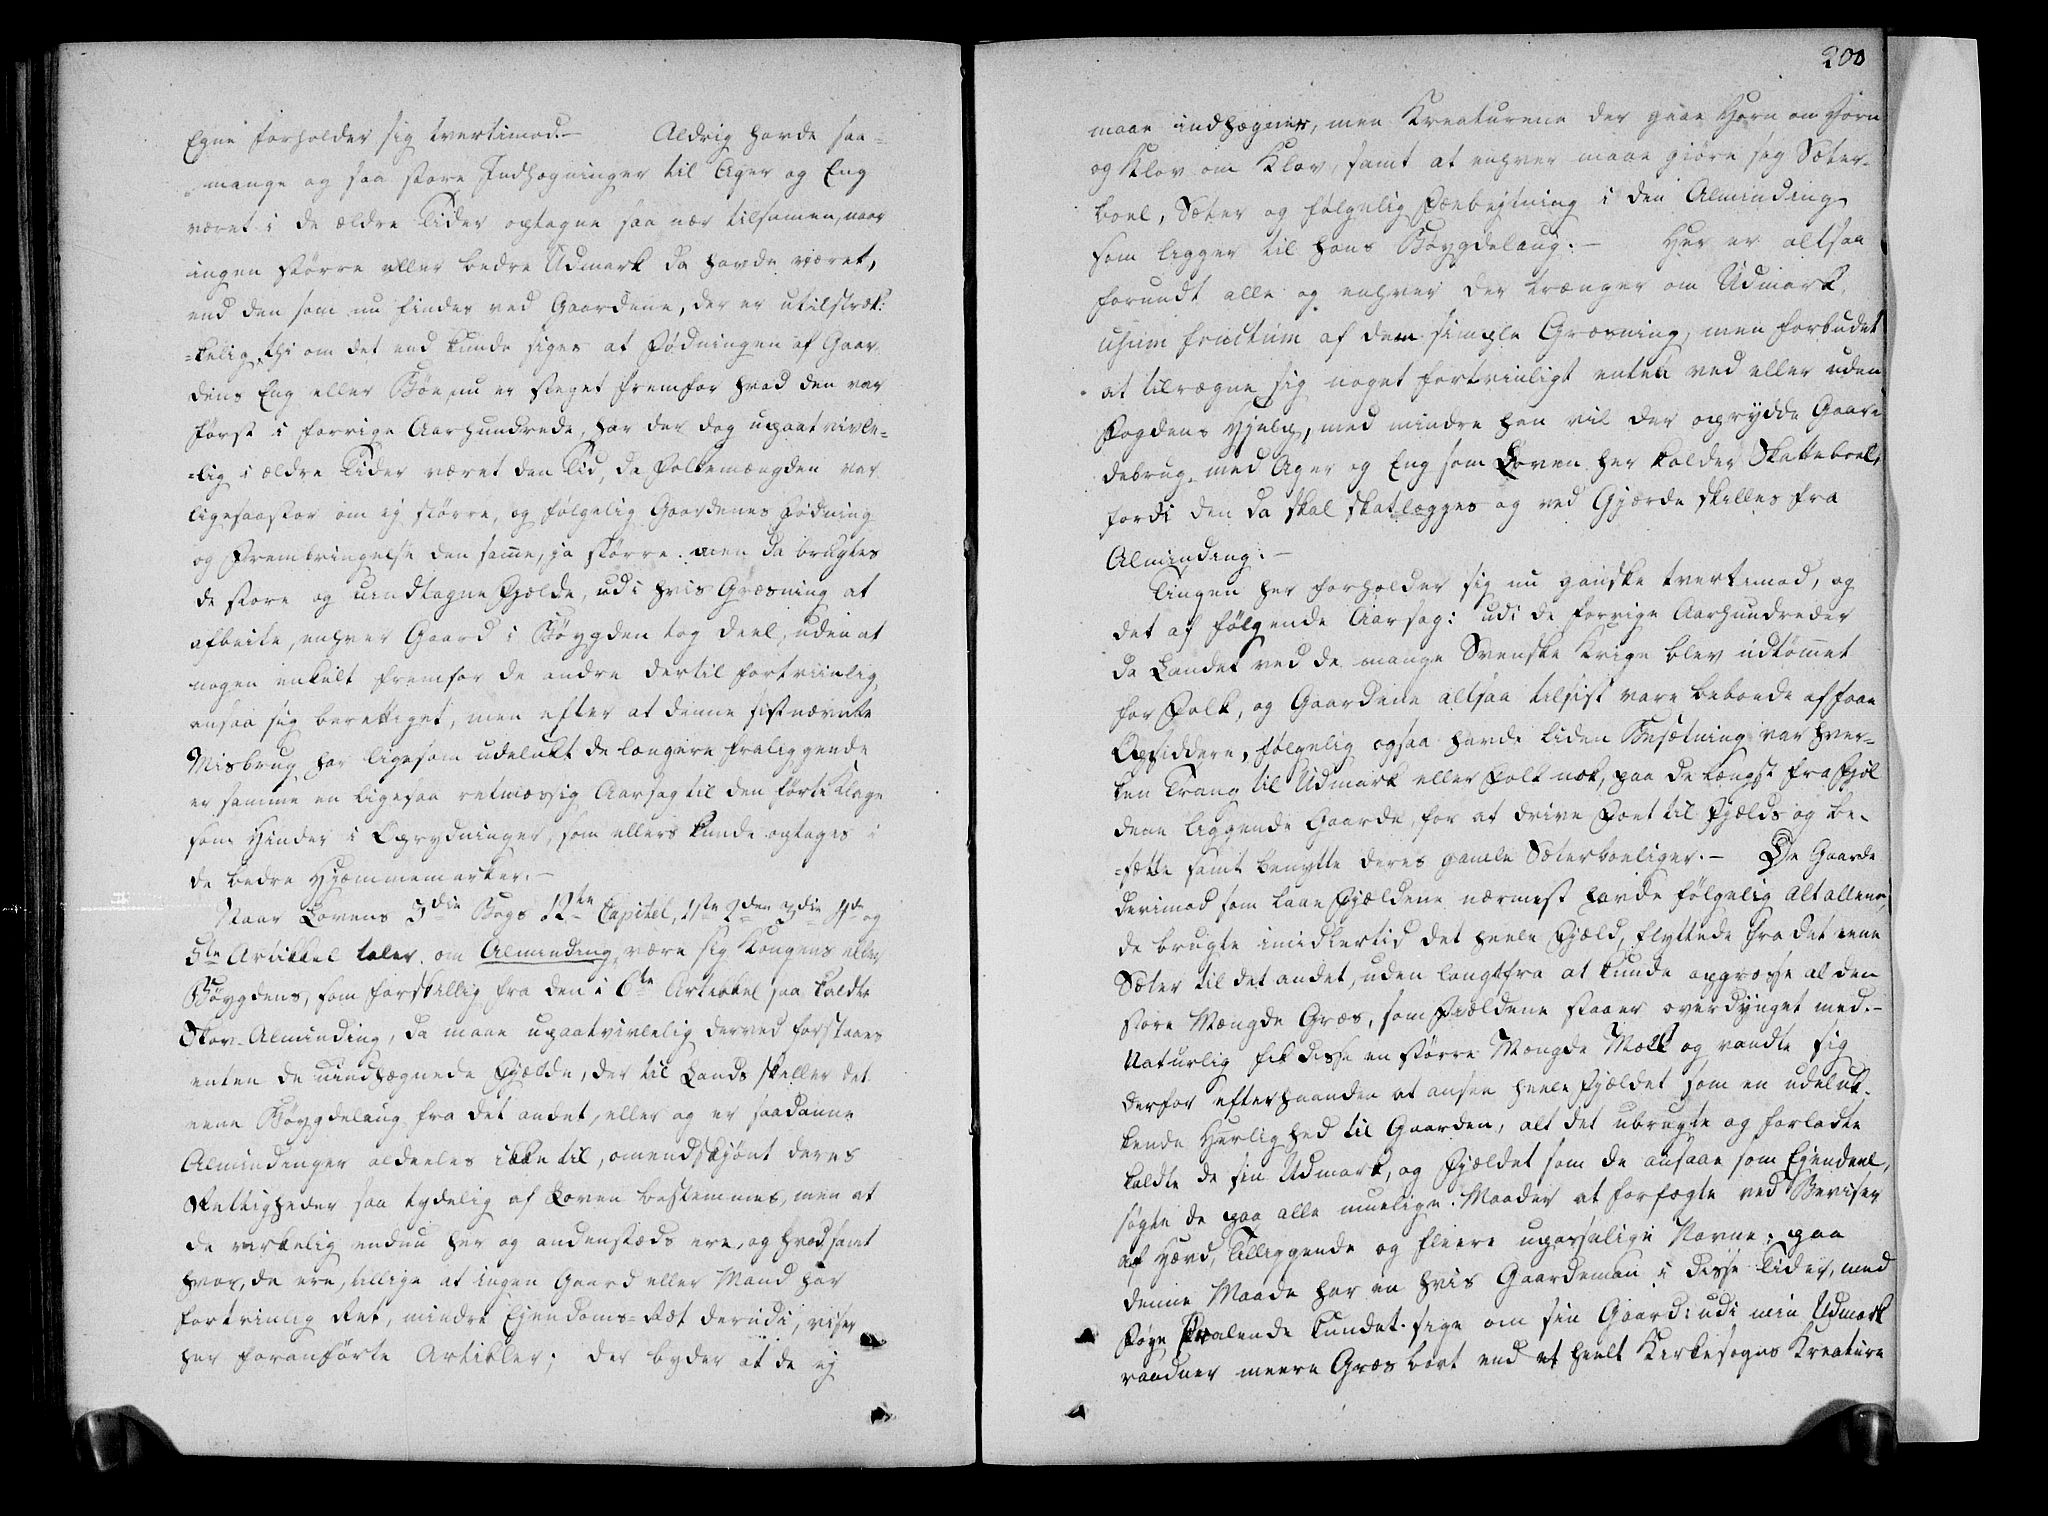 Egne forholder sig tvertimod. — Aldrig havde saa-
mange og saa store Indhægninger til Ager og Eng
været i de ældre Tider optagne saa nær tilsamen, naar
ingen større eller bedre Udmark da havde været,
end den som nu findes ved Gaardene, der er utilstræk-
-kelig, thi om det end kunde siges at Fødningen af Gaar-
dens Eng eller Bøe, nu er steget fremfor hvad den var
først i forrige Aarhundrede, har der dog upaatvivle-
-lig i ældre Tider været den Tid, da Folkemængden var
ligesaastor om ej større, og følgelig Gaardenes Fødning
og Frembringelse den samme, ja større. men da brugtes
de store og uindtagne Fjælde, udi hvis Græsning at
afbeite, enhver Gaard i Bøygden tog Deel, uden at
nogen enkelt fremfor de andre dertil fortriinlig
ansaa sig berettiget, men efter at denne sistnævnte
Misbrug har ligesom udelukt de længere fraliggende
er samme en ligesaa retmæssig Aarsag til den førte Klage
som Hinder i Oprydninger, som ellers kunde optages i
de bedre Hjæmmemarker. —
Naar Lovens 3die Bogs 12te Capitel, 1ste 2den 3die 4de og
5te Artikkel taler om Alminding, være sig Kongens eller
Bøygdens, som forskillig fra den i 6te Artikkel saa kaldte
Skov-Alminding, da maae upaatvivlelig derved forstaaes
enten de uindhægnede Fjælde, der til Lands skeller det
eene Bøygdelaug fra det andet, eller og er saadanne
Almindinger aldeeles ikke til, omendskjønt deres
Rettigheder saa tydelig af Loven bestemmes, men at
de virkelig endnu her og andenstæds ere, og hvad samt
hvor, de ere, tillige at ingen Gaard eller Mand har
fortrinlig Ret, mindre Ejendoms-Ræt derudi, viser
her foranførte Artikler; der byder at de ej
200
maae indhægnes, men Kreaturene der gaae Horn om Horn
og Klov om Klov, samt at enhver maae giøre sig Sæter-
boel, Sæter og følgelig Fæebejtning i den Alminding
som ligger til hans Bøygdelaug. — Her er altsaa
forundt alle og enhver der trænger om Udmark,
usum fructum af den simple Græsning, men forbudet
at tilrægne sig noget fortrinligt enten ved eller uden
Fogdens Hjelp, med mindre han vil der oprydde Gaar-
debrug, med Ager og Eng som Loven her kalder Skatteboel,
fordi den da skal skatlægges og ved Gjærde skilles fra
Alminding. —
Tingen her forholder sig nu ganske tvertimod, og
det af følgende Aarsag: udi de forrige Aarhundreder
da Landet ved de mange Svenske Krige blev udtømmet
for Folk, og Gaardene altsaa tilsist vare beboede af faae
Opsiddere, følgelig ogsaa havde liden Besætning var hver-
ken Trang til Udmark eller Folk nok, paa de længst fra Fjæl-
dene liggende Gaarde, for at drive Fæet til Fjælds og be-
-sætte samt benytte deres gamle Sæterboeliger. — De Gaarde
derimod som laae Fjældene nærmest havde følgelig alt allene,
de brugte imidlertid det heele Fjæld, flyttede fra det eene
Sæter til det andet, uden langtfra at kunde opgræsse al den
store Mængde Græs, som Fjældene staaer overdynget med. —
Naturlig fik disse en større Mængde Mælk og vandte sig
derfor efterhaanden at ansee heele Fjældet som en udeluk-
kende Herlighed til Gaarden, alt det ubrugte og forladte
kaldte de sin Udmark, og Fjældet som de ansaae som Ejendeel,
søgte de paa alle muelige Maader at forfægte ved Beviser
af Hævd, Tilliggende og fleere upasselige Navne; paa
denne Maade har en hvis Gaardeman i disse Tider, med
Føye pralende kundet sige om sin Gaard: udi min Udmark
raadner meere Græs bort end et heelt Kirkesogns Kreature